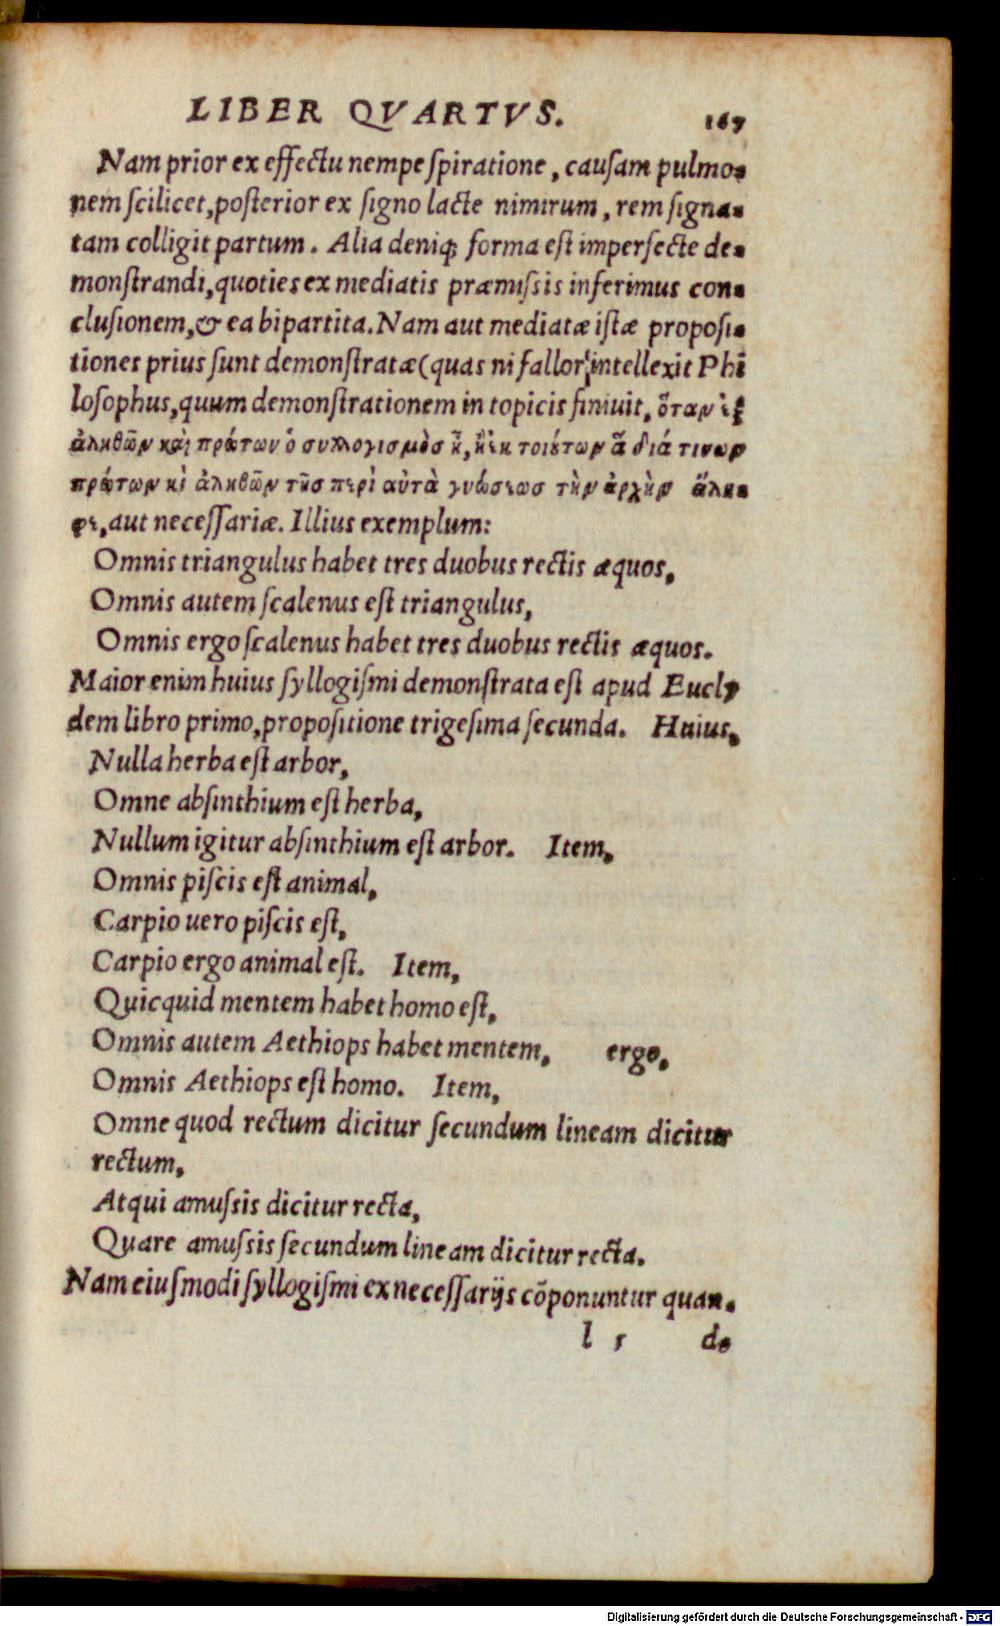 LIBER QVARTVS. 167
Nam prior ex effectu nempe ſpiratione, cauſam pulmo-
nem ſcilicet, poſterior ex ſigno lacte nimirum, rem ſigna-
tam colligit partum. Alia deniq; forma eſt imperfecte de-
monſtrandi, quoties ex mediatis præmiſsis inferimus con-
cluſionem, & ea bipartita. Nam aut mediatæ iſtæ propoſi-
tiones prius ſunt demonſtratæ (quas ni fallor intellexit Phi
loſophus, quum demonſtrationem in topicis finiuit, ὅταν ἐξ
ἀληθῶν καὶ πρώτων ὁ συλλογισμὸσ ᾖ, ἢ ἐκ τοιούτων ἃ διά τινων
πρώτων κὶ ἀληθῶν τῆσ περὶ αὐτὰ γνώσεωσ τὴν ἀρχὴν ἄλη-
φε, aut neceſſariæ. Illius exemplum:
Omnis triangulus habet tres duobus rectis æquos,
Omnis autem ſcalenus eſt triangulus,
Omnis ergo ſcalenus habet tres duobus rectis æquos.
Maior enim huius ſyllogiſmi demonſtrata eſt apud Eucly
dem libro primo, propoſitione trigeſima ſecunda. Huius,
Nulla herba eſt arbor,
Omne abſinthium eſt herba,
Nullum igitur abſinthium eſt arbor. Item,
Omnis piſcis eſt animal,
Carpio uero piſcis eſt,
Carpio ergo animal eſt. Item,
Quicquid mentem habet homo eſt,
Omnis autem Aethiops habet mentem, ergo,
Omnis Aethiops eſt homo. Item,
Omne quod rectum dicitur ſecundum lineam dicitur
rectum,
Atqui amuſsis dicitur recta,
Quare amuſsis ſecundum lineam dicitur recta.
Nam eiuſmodi ſyllogiſmi ex neceſſarijs cōponuntur quan-
l 5 do
Digitalisierung gefördert durch die Deutsche Forschungsgemeinschaft - DFG